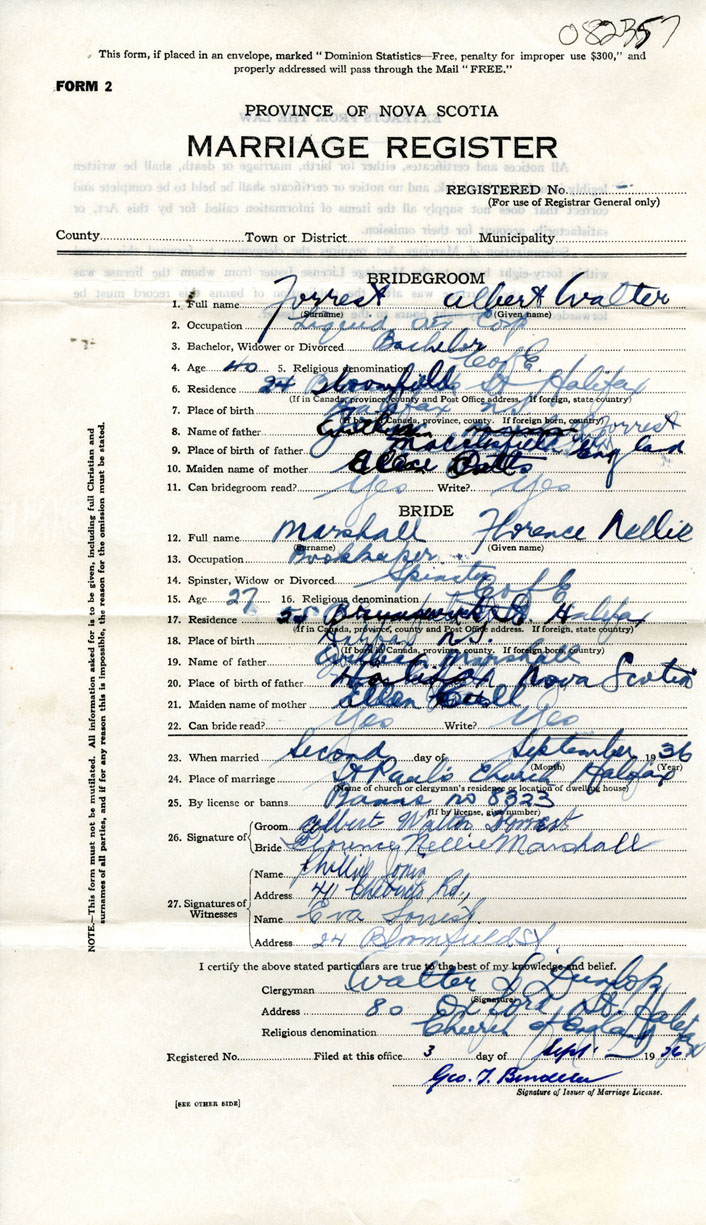 082357
This form, if placed in an envelope, marked "Dominion Statistics—Free, penalty for improper use $300," and
properly addressed will pass through the Mail "FREE."
FORM 2
PROVINCE OF NOVA SCOTIA
MARRIAGE REGISTER
REGISTERED No.
(For use of Registrar General only)
County Town or District Municipality
BRIDEGROOM
1. Full name Forrest Albert Walter
(Surname) (Given name)
2. Occupation Liquid Air Corp
3. Bachelor, Widower or Divorced Bachelor
4. Age 40 5. Religious denomination C of E
6. Residence 24 Bloomfield St Halifax
(If in Canada, province, county and Post Office address. If foreign, state country)
7. Place of birth Halifax N.S.
(If born Canada, province, county. If foreign born, country)
8. Name of father Forrest
9. Place of birth of father England
10. Maiden name of mother Potts
11. Can bridegroom read? Yes Write? Yes
BRIDE
12. Full name Marshall Florence Nellie
(Surname) (Given name)
13. Occupation Bookkeeper
14. Spinster, Widow or Divorced Spinster
15. Age 27 16. Religious denomination C of E
17. Residence Brunswick St Halifax
(If in Canada, province, county and Post Office address. If foreign, state country)
18. Place of birth N.S.
(If born Canada, province, county. If foreign born, country)
19. Name of father Marshall
20. Place of birth of father Halifax Nova Scotia
21. Maiden name of mother Ellen
22. Can bride read? Yes Write? Yes
23. When married Second day of September 1936
(Month) (Year)
24. Place of marriage St Paul's Church Halifax
(Name of church or clergyman's residence or location of dwelling house)
25. By license or banns Banns no 8323
(If by license, give number)
26. Signature of Groom Albert Walter Forrest
Bride Florence Nellie Marshall
27. Signatures of Witnesses
Name Phillip Jones
Address 41 Chebucto Rd.,
Name Eva Forrest
Address 24 Bloomfield St.
I certify the above stated particulars are true to the best of my knowledge and belief.
Clergyman Walter S Dunlop
(Signature)
Address 80 Oxford St. Halifax
Religious denomination Church of England
Registered No. Filed at this office 3 day of Sept. 1936
Geo. T.
Signature of Issuer of Marriage License.
[SEE OTHER SIDE]
NOTE.—This form must not be mutilated. All information asked for is to be given, including full Christian and
surnames of all parties, and if for any reason this is impossible, the reason for the omission must be stated.